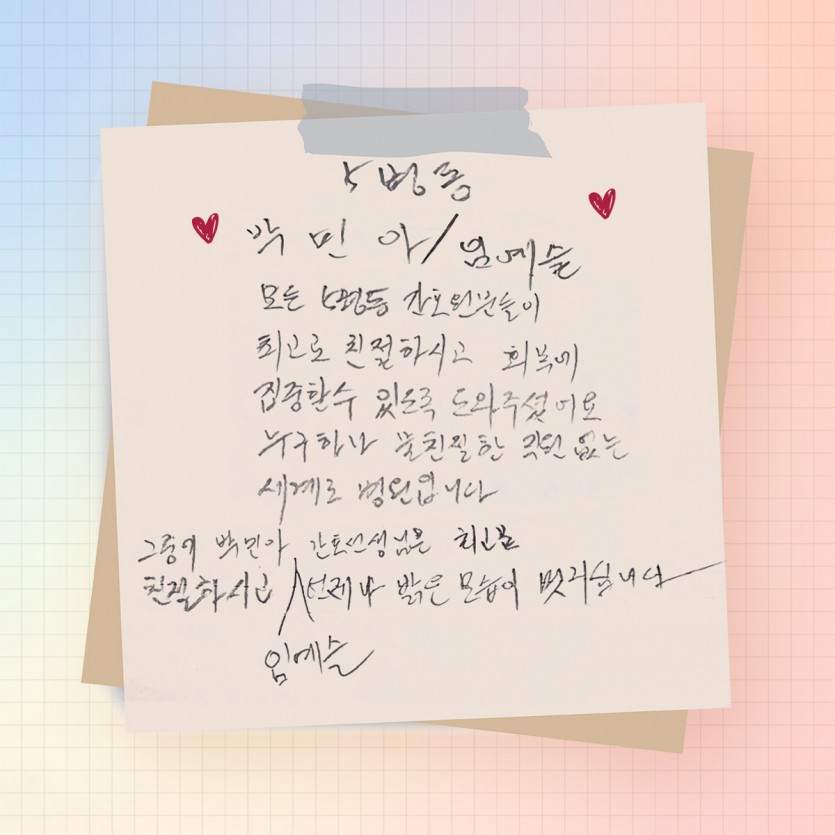 5병동
박민아/임예슬
모든 5병동 간호원분들이
최고로 친절하시고 회복에
집중할수 있도록 도와주셨어요
누구하나 불친절한 직원 없는
세계로 병원입니다
그중에 박민아 간호선생님은 최고로
친절하시고 언제나 밝은 모습이 멋지십니다
임예슬